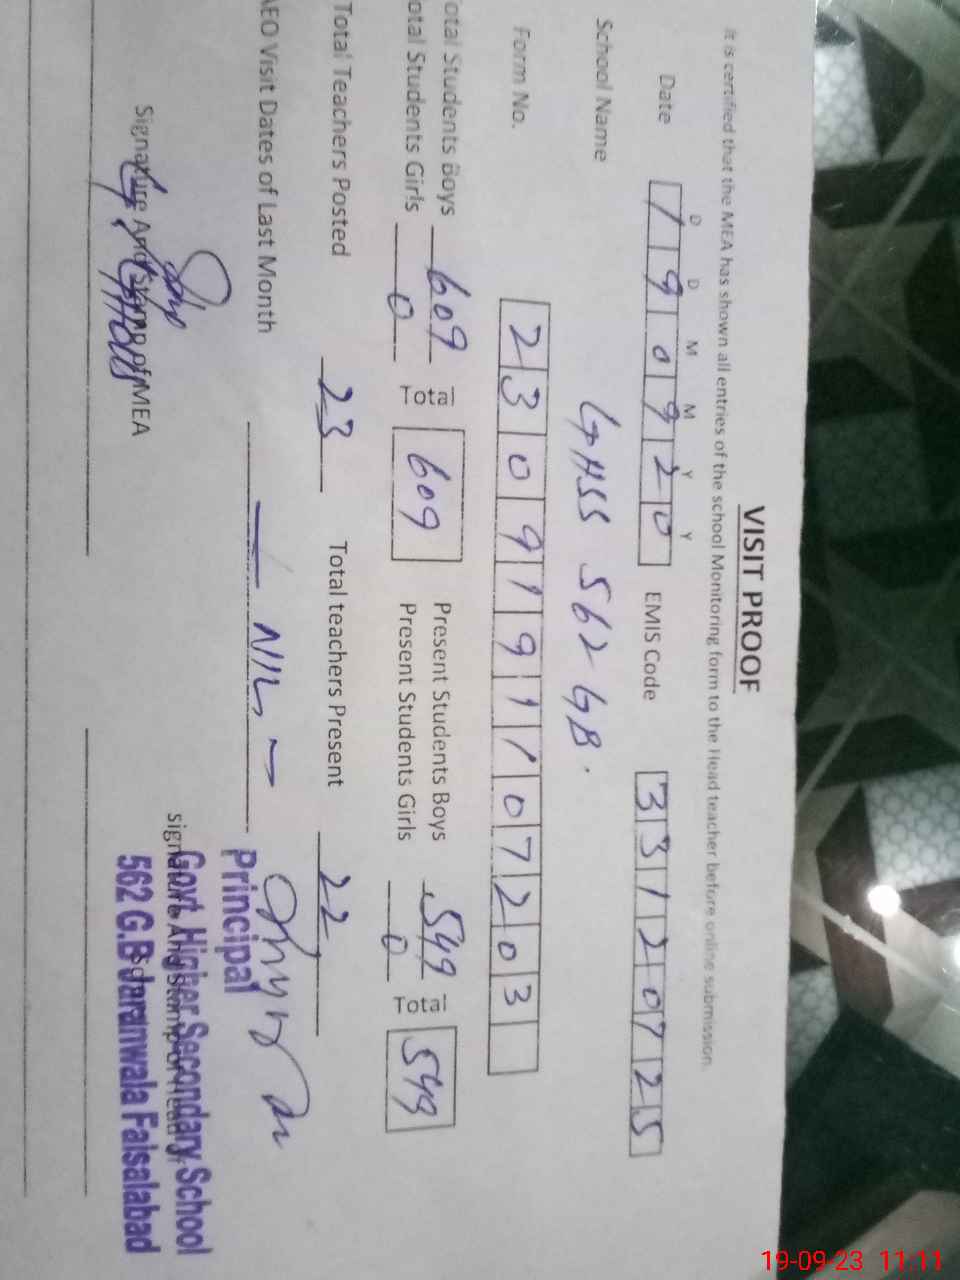 VISIT PROOF
It is certified that the MEA has shown all entries of the school Monitoring form to the Head teacher before online submission.
D D M M Y Y
Date 1 9 0 9 2 0 EMIS Code 3 3 1 2 0 7 2 5
School Name GHSS 562 GB.
Form No. 2 3 0 9 1 9 1 1 0 7 2 0 3
otal Students Boys 609 Total 609 Present Students Boys 549 Total 549
otal Students Girls 0 Present Students Girls 0
Total Teachers Posted 23 Total teachers Present 22
AEO Visit Dates of Last Month — NIL —
Signature And Stamp of MEA
signature And Stamp of Head
Principal
Govt. Higher Secondary School
562 G.B Jaranwala Faisalabad
19-09-23 11:11